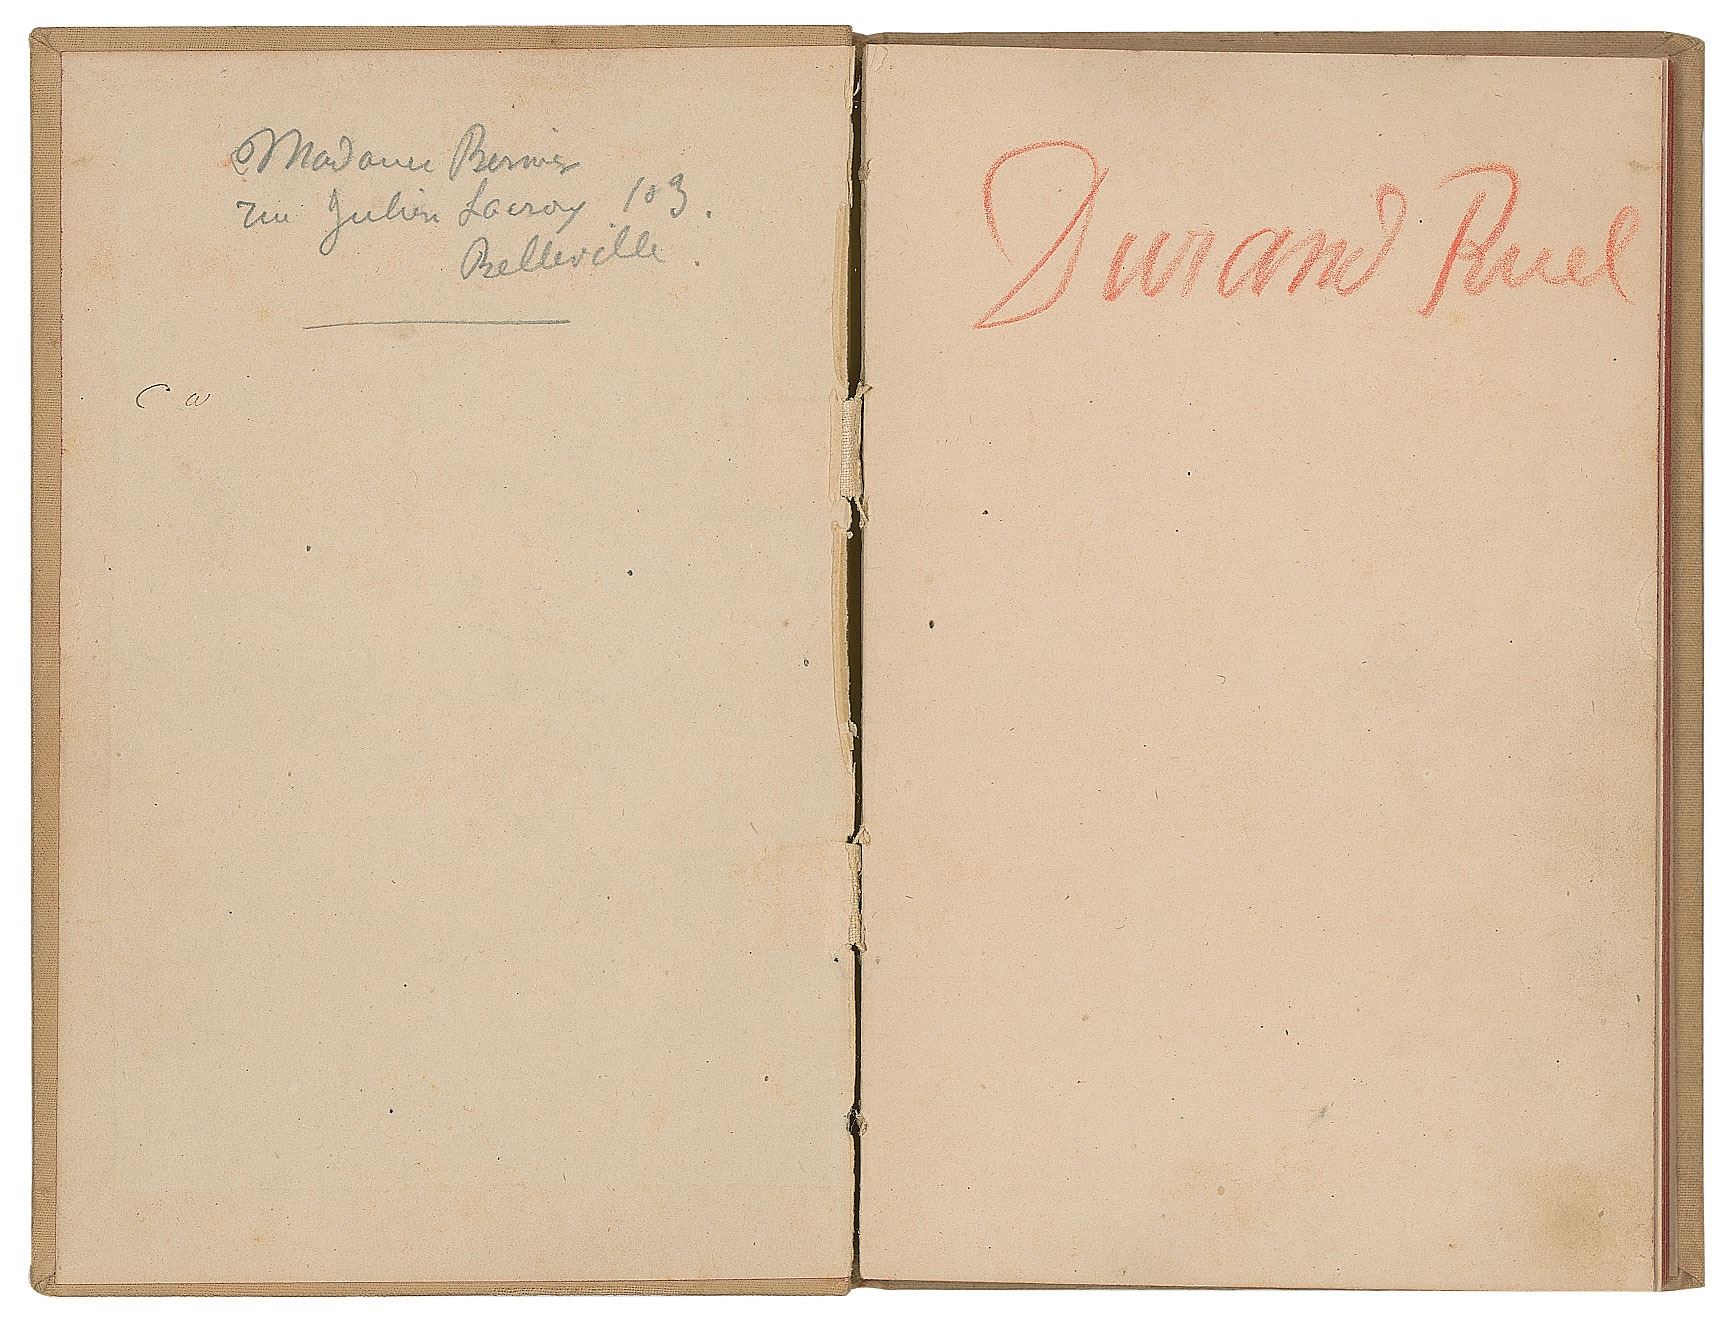 Madame Bernier
rue Julien Lacroix 103.
Belleville.
C w
Durand Ruel